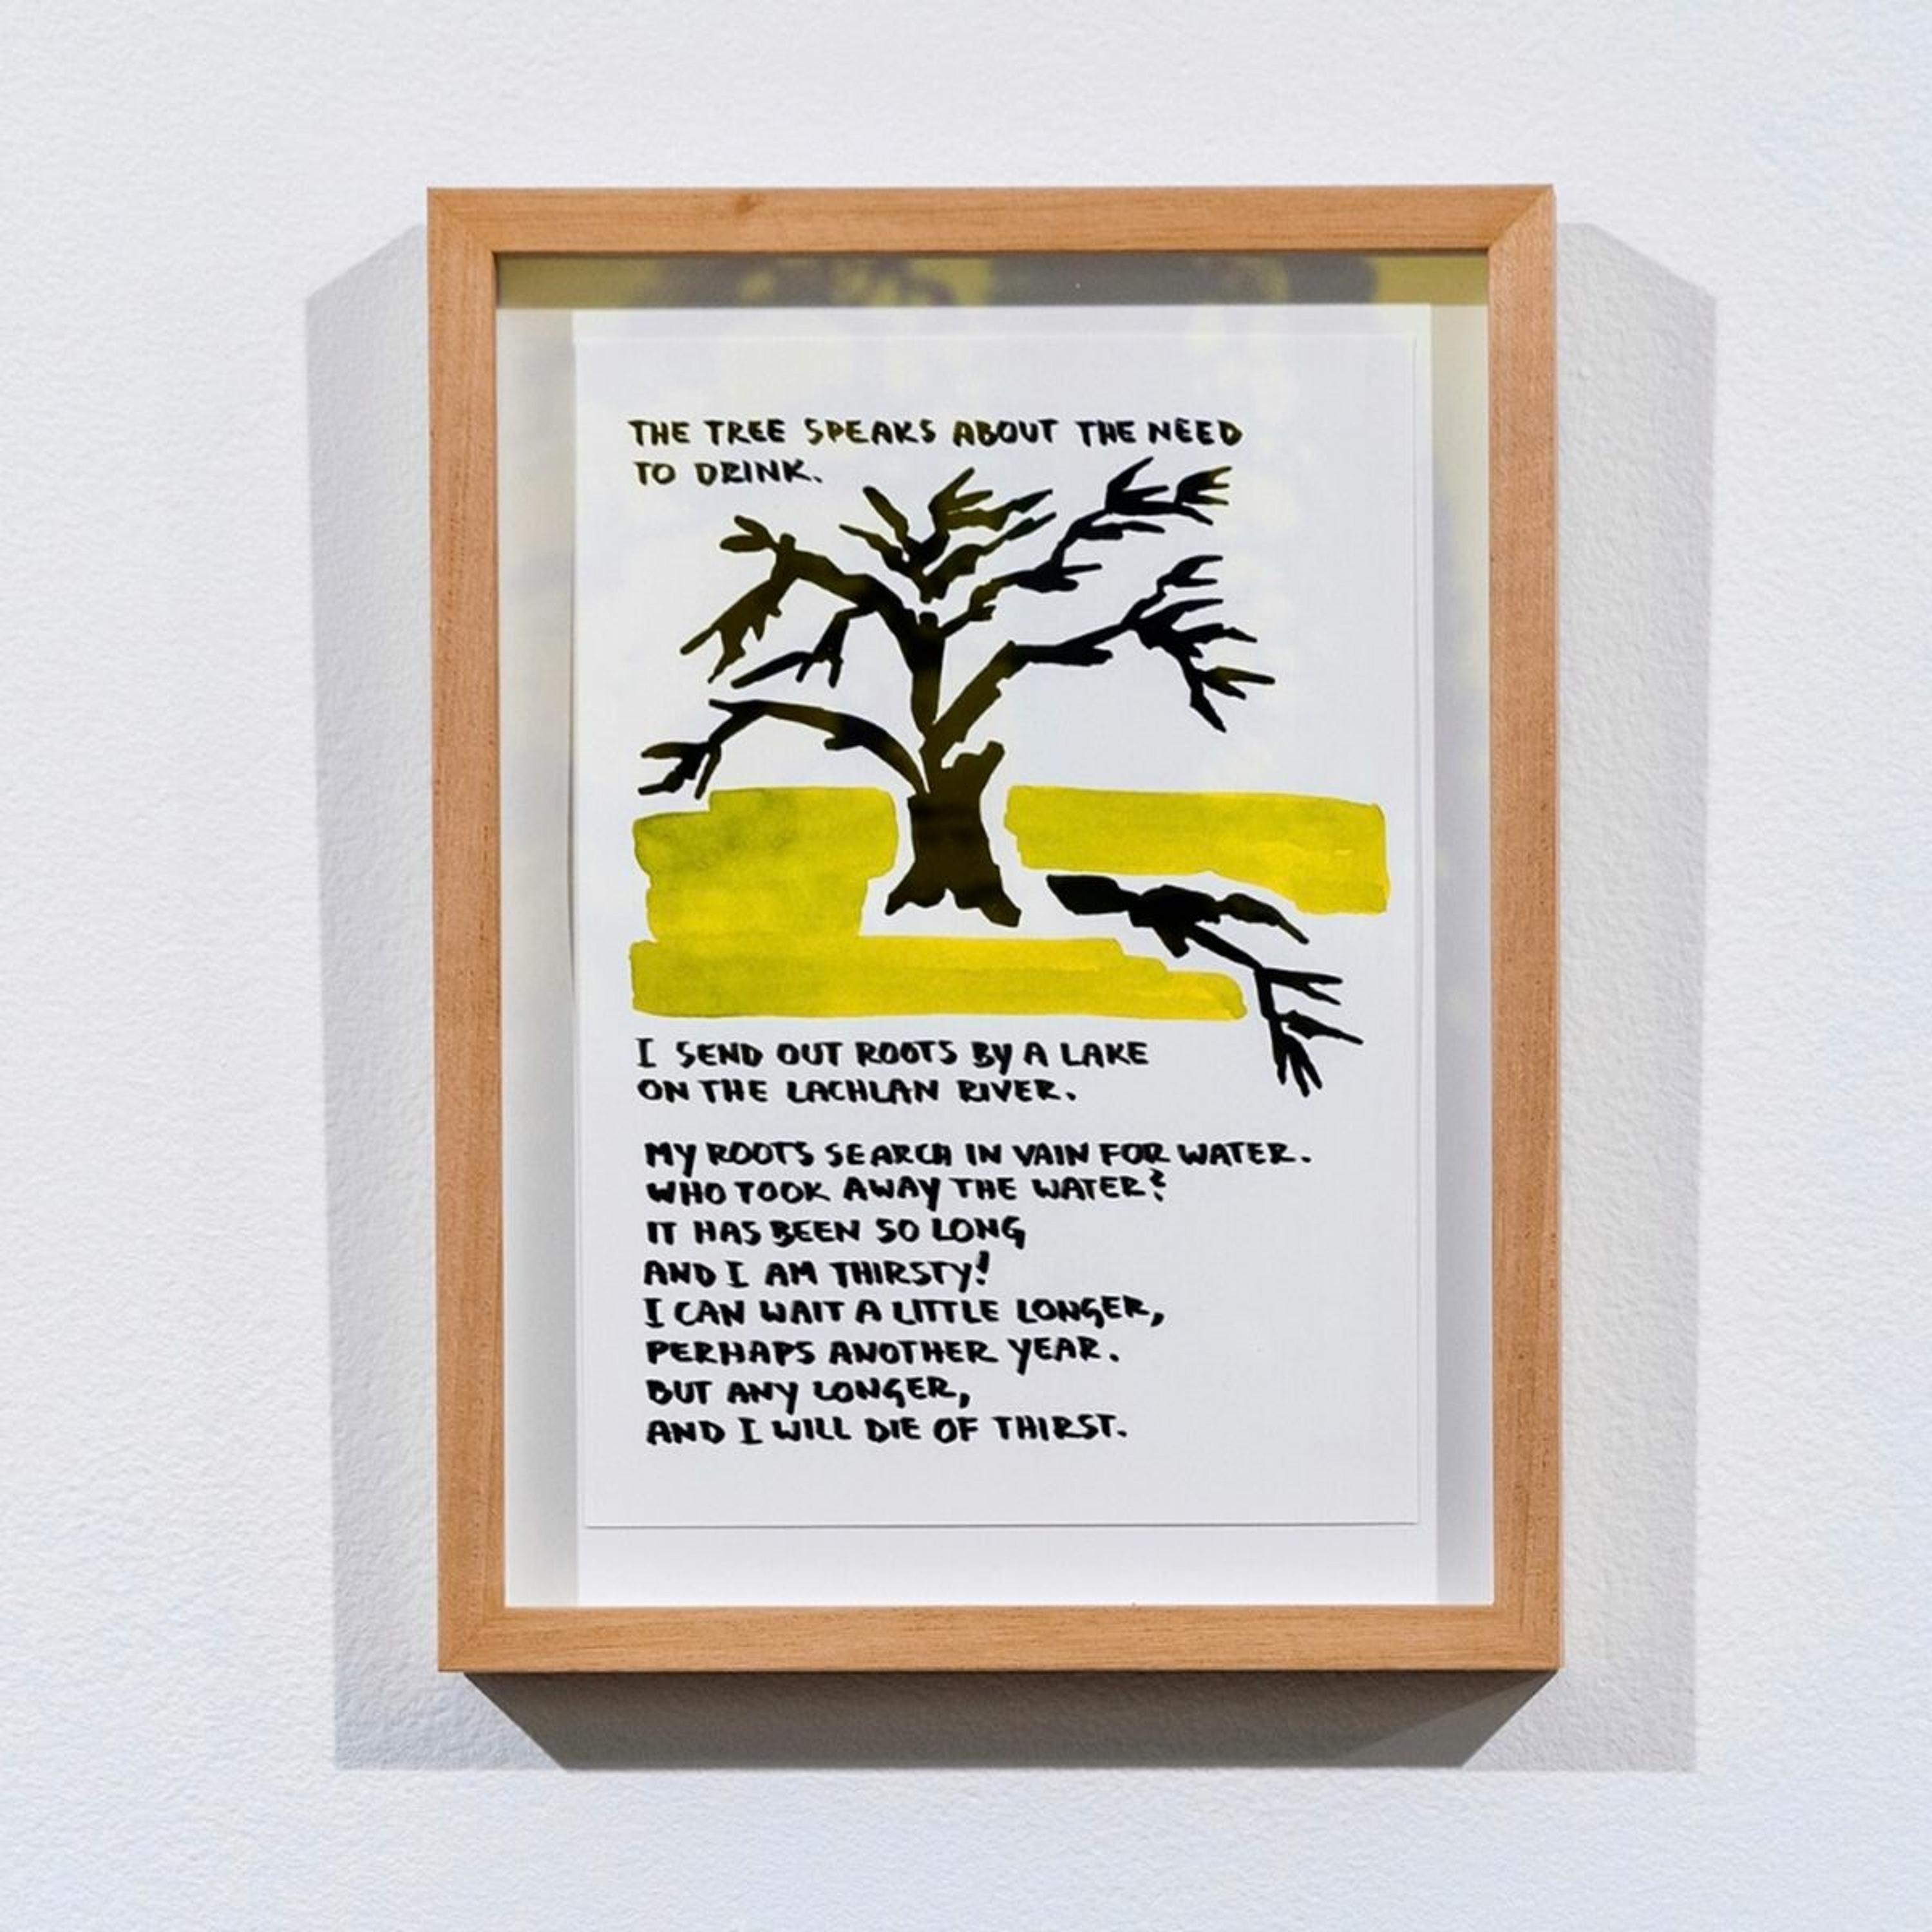 THE TREE SPEAKS ABOUT THE NEED
TO DRINK.
I SEND OUT ROOTS BY A LAKE
ON THE LACHLAN RIVER.
MY ROOTS SEARCH IN VAIN FOR WATER.
WHO TOOK AWAY THE WATER?
IT HAS BEEN SO LONG
AND I AM THIRSTY!
I CAN WAIT A LITTLE LONGER,
PERHAPS ANOTHER YEAR.
BUT ANY LONGER,
AND I WILL DIE OF THIRST.